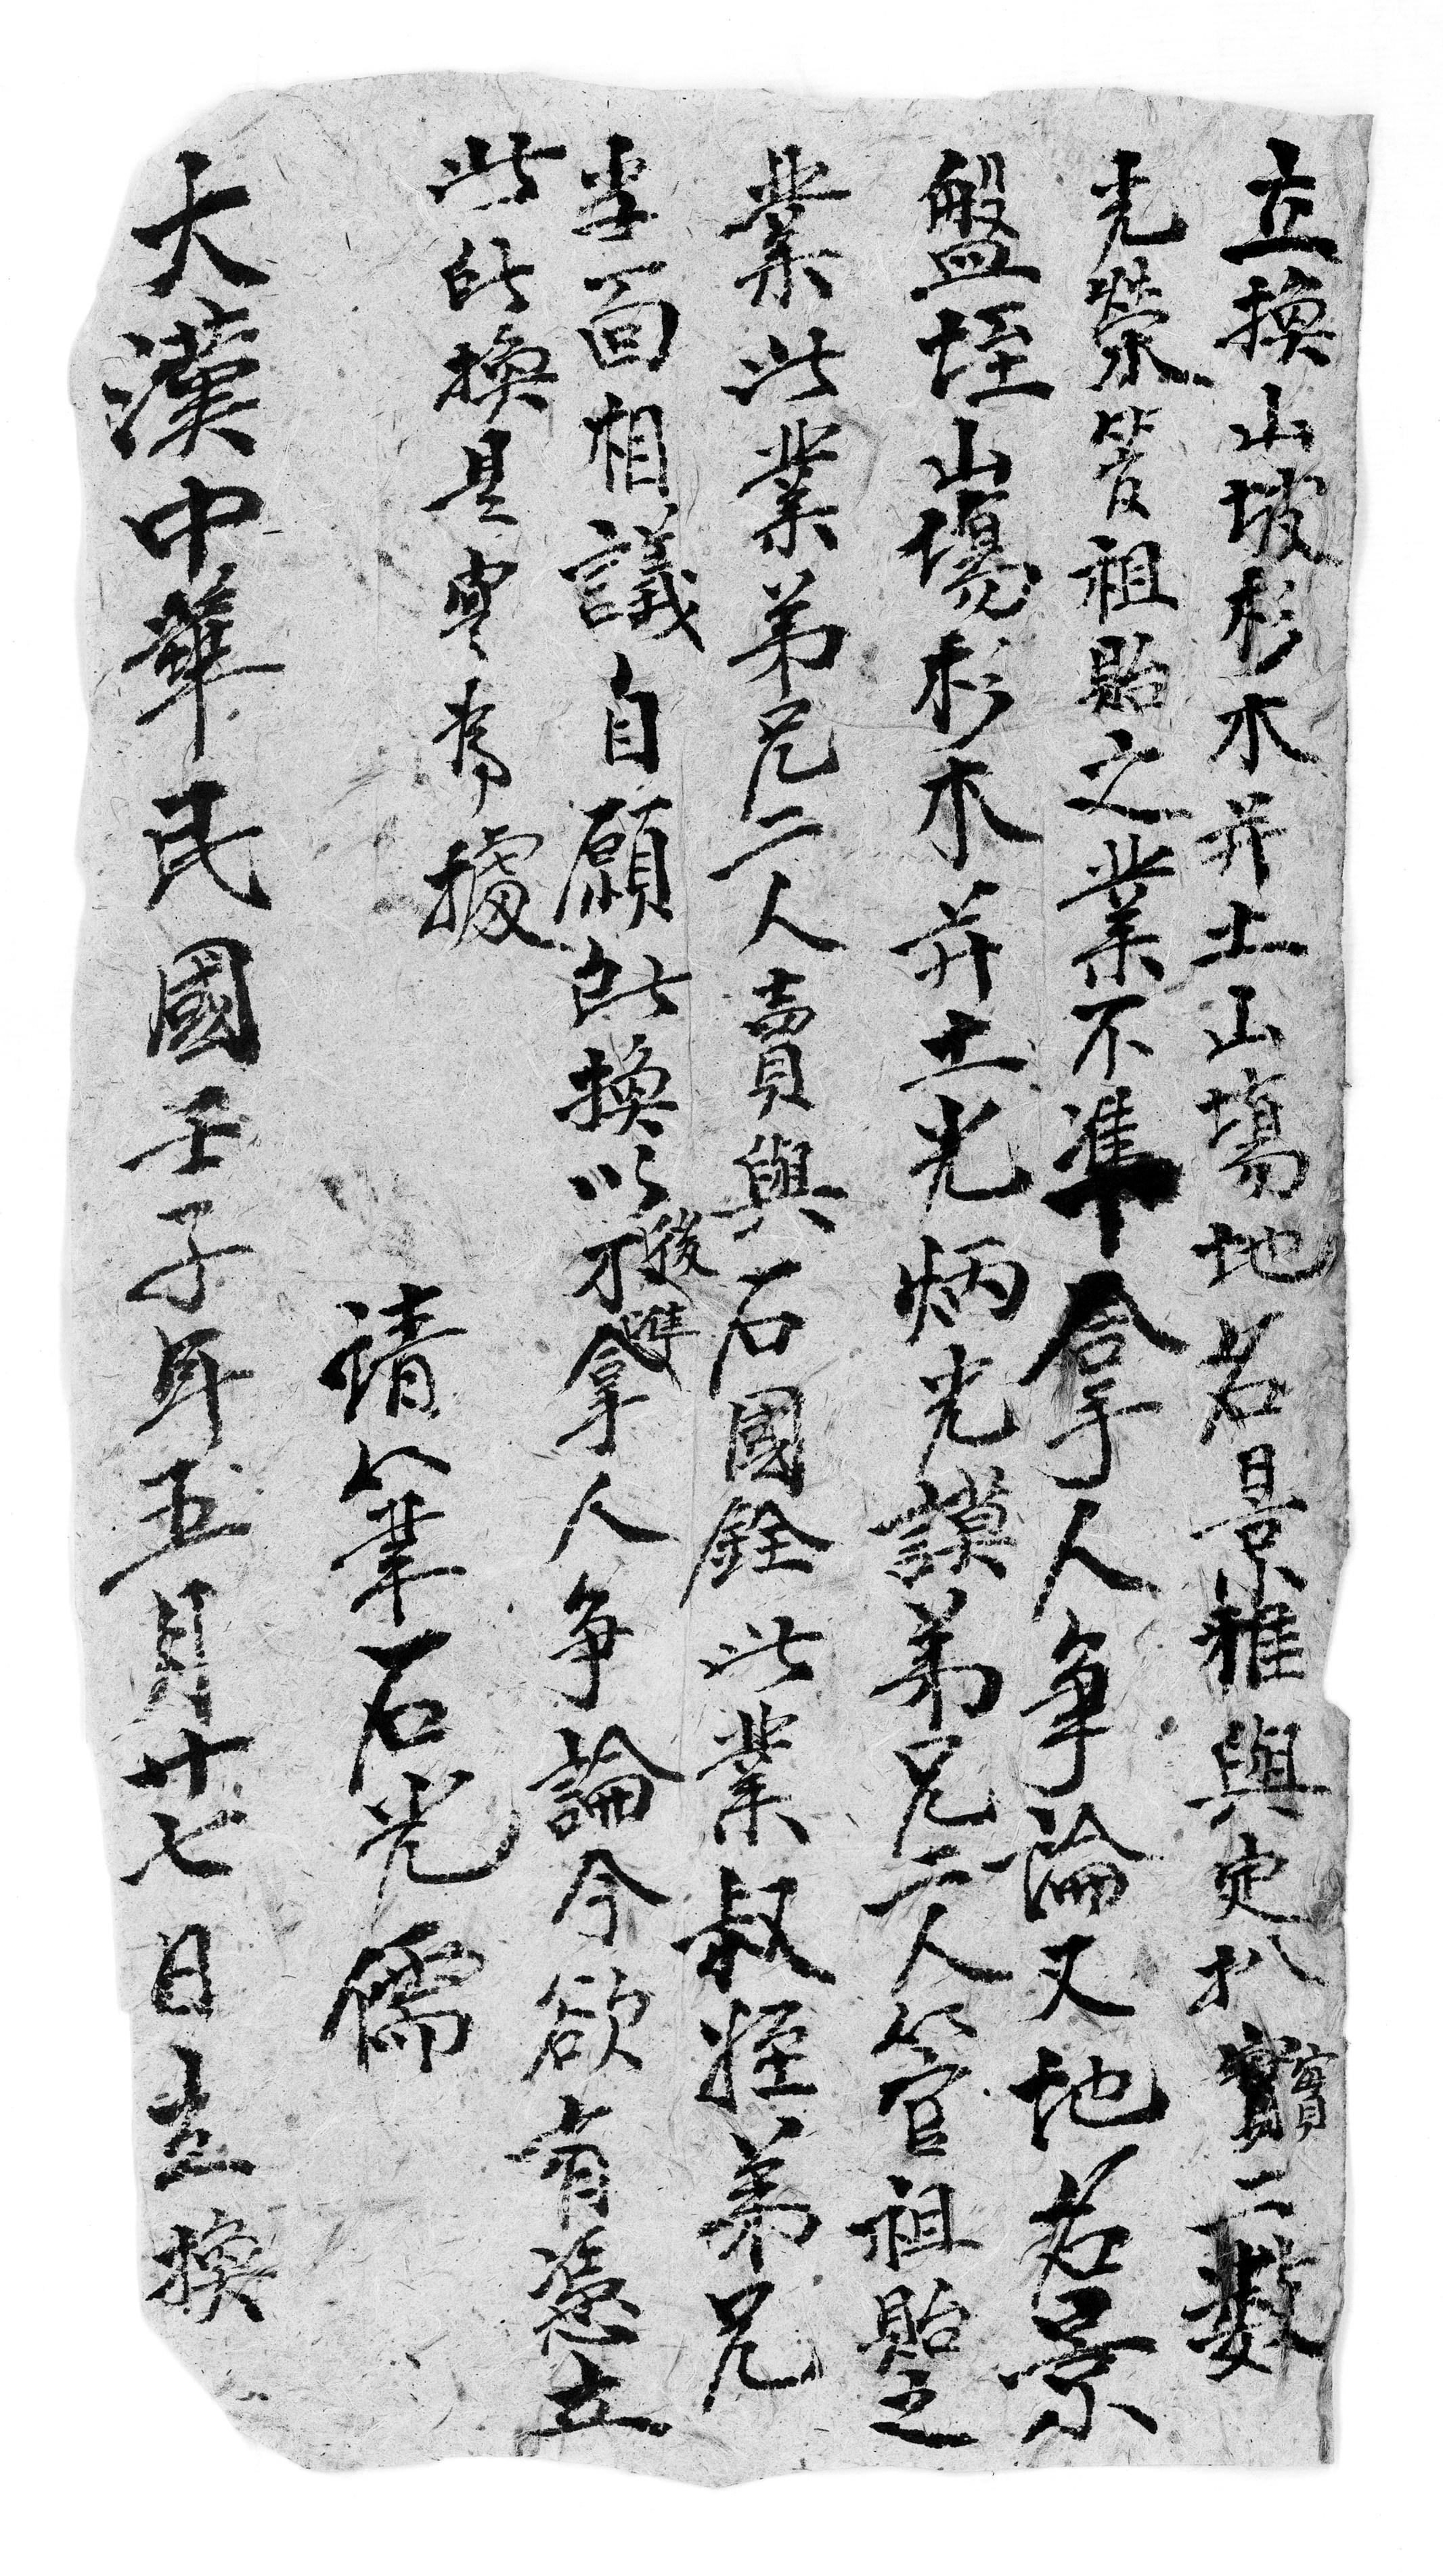 立換山坡杉木并土山塲地名景雅與定扒寳二数
光榮管祖貽之業不準拿人争論又地名景
盤垤山塲杉木并土光炳光謨弟兄二人管祖貽之
業此業弟兄二人賣與石國銓此業叔姪弟兄
当面相議自願皆換以後不準拿人争論今欲有憑立
此皆換是實為據
請筆石光儒
大漢中華民國壬子年五月廿七日立換